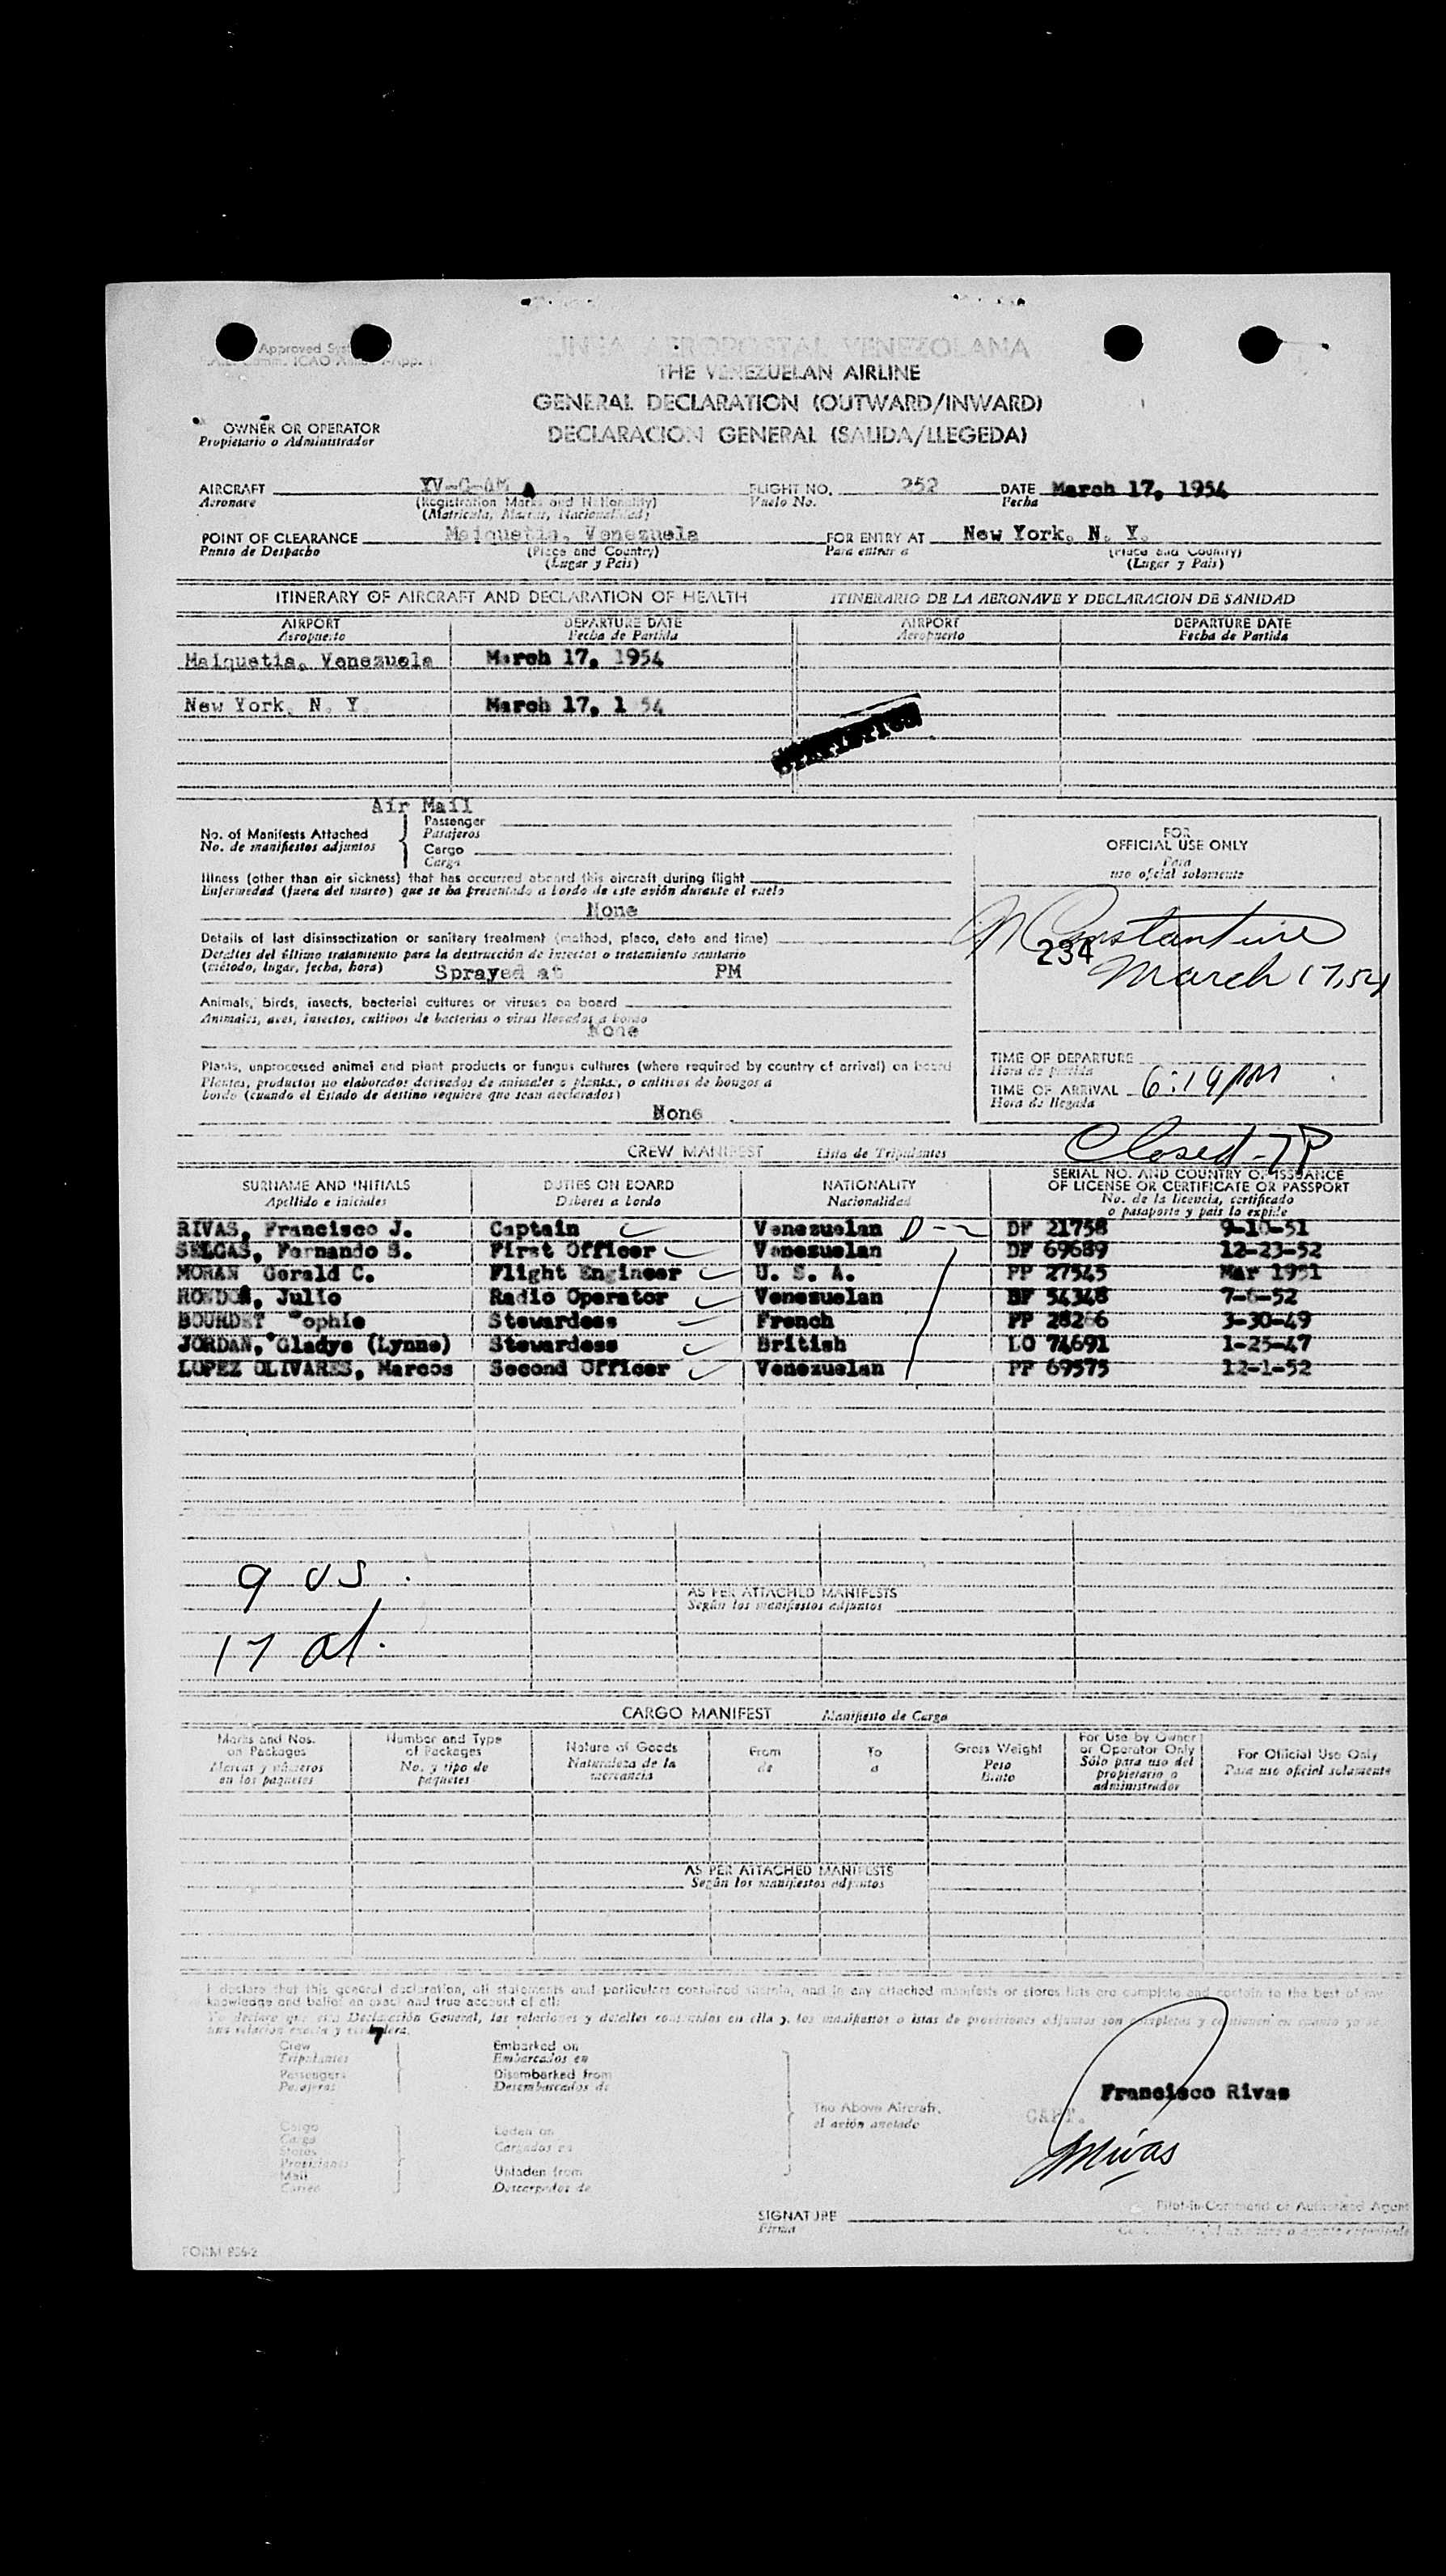 Approved
LINEA AEROPOSTAL VENEZOLANA
THE VENEZUELAN AIRLINE
GENERAL DECLARATION (OUTWARD/INWARD)
DECLARACION GENERAL (SALIDA/LLEGEDA)
OWNER OR OPERATOR
Propietario o Administrador
AIRCRAFT YV-C-AM A FLIGHT NO. 252 DATE March 17, 1954
Aeronave (Registration Marks and Nationality) Vuelo No. Fecha
(Matricula, Marcas, Nacionalidad)
POINT OF CLEARANCE Maiquetia, Venezuela FOR ENTRY AT New York, N. Y.
Punto de Despacho (Place and Country) Para entrar a (Place and Country)
(Lugar y Pais) (Lugar y Pais)
ITINERARY OF AIRCRAFT AND DECLARATION OF HEALTH ITINERARIO DE LA AERONAVE Y DECLARACION DE SANIDAD
AIRPORT DEPARTURE DATE AIRPORT DEPARTURE DATE
Aeropuerto Fecha de Partida Aeropuerto Fecha de Partida
Maiquetia, Venezuela March 17, 1954
New York, N. Y. March 17, 1 54
Air Mail
No. of Manifests Attached Passenger
No. de manifiestos adjuntos Pasajeros
Cargo
Carga
FOR
OFFICIAL USE ONLY
Para
uso oficial solamente
Illness (other than air sickness) that has occurred aboard this aircraft during flight
Enfermedad (fuera del mareo) que se ha presentado a bordo de este avión durante el vuelo
None
Details of last disinsectization or sanitary treatment (method, place, date and time)
Detalles del último tratamiento para la destrucción de insectos o tratamiento sanitario
(método, lugar, fecha, hora) Sprayed at PM
Constantine
234
March 17, 54
Animals, birds, insects, bacterial cultures or viruses on board
Animales, aves, insectos, cultivos de bacterias o virus llevados a bordo
None
Plants, unprocessed animal and plant products or fungus cultures (where required by country of arrival) on board
Plantas, productos no elaborados derivados de animales o plantas, o cultivos de hongos a
bordo (cuando el Estado de destino requiere que sean declarados)
None
TIME OF DEPARTURE
Hora de partida
TIME OF ARRIVAL 6:19 PM
Hora de llegada
Closed - 7P
CREW MANIFEST Lista de Tripulantes
SURNAME AND INITIALS DUTIES ON BOARD NATIONALITY SERIAL NO. AND COUNTRY OF ISSUANCE
Apellido e iniciales Deberes a bordo Nacionalidad OF LICENSE OR CERTIFICATE OR PASSPORT
No. de la licencia, certificado
o pasaporte y pais lo expide
RIVAS, Francisco J. Captain Venezuelan DF 21758 9-10-51
SELGAS, Fernando S. First Officer Venezuelan DF 69689 12-23-52
MORAN Gerald C. Flight Engineer U. S. A. PP 27545 Mar 1951
Julio Radio Operator Venezuelan 54348 7-6-52
BOURDET Sophie Stewardess French PP 28286 3-30-49
JORDAN, Gladys (Lynne) Stewardess British LO 74691 1-25-47
LOPEZ OLIVARES, Marcos Second Officer Venezuelan PP 69575 12-1-52
9 US.
AS PER ATTACHED MANIFESTS
Según los manifiestos adjuntos
17 al.
CARGO MANIFEST Manifiesto de Carga
Marks and Nos. Number and Type Nature of Goods From To Gross Weight For Use by Owner For Official Use Only
on Packages of Packages Naturaleza de la de a Peso or Operator Only Para uso oficial solamente
Marcas y números No. y tipo de mercancia Bruto Sólo para uso del
en los paquetes paquetes propietario o
administrador
AS PER ATTACHED MANIFESTS
Según los manifiestos adjuntos
I declare that this general declaration, all statements and particulars contained therein, and in any attached manifests or stores lists are complete and contain to the best of my
knowledge and belief an exact and true account of all:
Yo declaro que esta Declaración General, las relaciones y detalles contenidos en ella y los manifiestos o listas de provisiones adjuntos son completos y contienen en cuanto yo sé
una relacion exacta y verdadera.
7
Crew Embarked on
Tripulantes Embarcados en
Passengers Disembarked from
Pasajeros Desembarcados de
The Above Aircraft.
el avión anotado
Francisco Rivas
CAPT.
Cargo Laden on
Carga Cargados en
Stores
Provisiones
Mail Unladen from
Correo Descargados de
FRivas
Pilot-in-Command or Authorized Agent
SIGNATURE
Firma
FORM 806-2